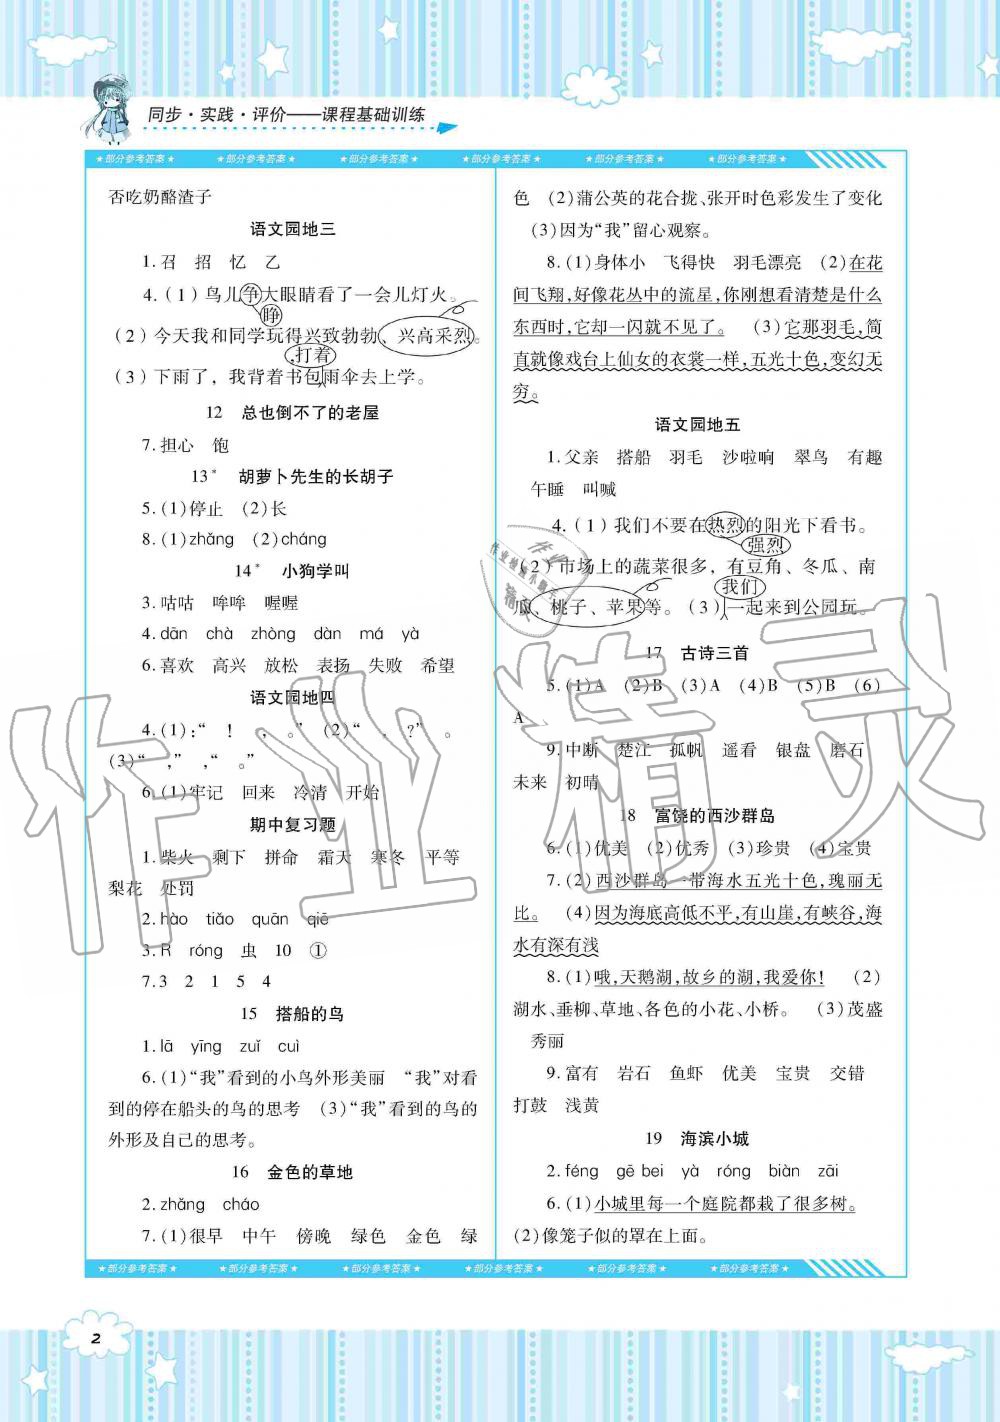 同步·实践·评价——课程基础训练
★部分参考答案★ ★部分参考答案★ ★部分参考答案★ ★部分参考答案★ ★部分参考答案★ ★部分参考答案★
否吃奶酪渣子
语文园地三
1.召 招 忆 乙
4.(1)鸟儿争大眼睛看了一会儿灯火。
睁
(2)今天我和同学玩得兴致勃勃、兴高采烈。
打着
(3)下雨了，我背着书包雨伞去上学。
12 总也倒不了的老屋
7.担心 饱
13* 胡萝卜先生的长胡子
5.(1)停止 (2)长
8.(1)zhǎng (2)cháng
14* 小狗学叫
3.咕咕 哞哞 喔喔
4.dān chà zhòng dàn má yà
6.喜欢 高兴 放松 表扬 失败 希望
语文园地四
4.(1):“ ！ ， 。” (2)“ ， ?” 。
(3)“ ，” ，“ 。”
6.(1)牢记 回来 冷清 开始
期中复习题
1.柴火 剩下 拼命 霜天 寒冬 平等
梨花 处罚
2.hào tiǎo quān qiē
3.R róng 虫 10 ①
7.3 2 1 5 4
15 搭船的鸟
1.lā yīng zuǐ cuì
6.(1)“我”看到的小鸟外形美丽 “我”对看
到的停在船头的鸟的思考 (3)“我”看到的鸟的
外形及自己的思考。
16 金色的草地
2.zhǎng cháo
7.(1)很早 中午 傍晚 绿色 金色 绿
色 (2)蒲公英的花合拢、张开时色彩发生了变化
(3)因为“我”留心观察。
8.(1)身体小 飞得快 羽毛漂亮 (2)在花
间飞翔,好像花丛中的流星,你刚想看清楚是什么
东西时,它却一闪就不见了。 (3)它那羽毛,简
直就像戏台上仙女的衣裳一样,五光十色,变幻无
穷。
语文园地五
1.父亲 搭船 羽毛 沙啦响 翠鸟 有趣
午睡 叫喊
4.(1)我们不要在热烈的阳光下看书。
强烈
(2)市场上的蔬菜很多，有豆角、冬瓜、南
我们
瓜、桃子、苹果等。(3)一起来到公园玩。
17 古诗三首
5.(1)A (2)B (3)A (4)B (5)B (6)
A
9.中断 楚江 孤帆 遥看 银盘 磨石
未来 初晴
18 富饶的西沙群岛
6.(1)优美 (2)优秀 (3)珍贵 (4)宝贵
7.(2)西沙群岛一带海水五光十色,瑰丽无
比。 (4)因为海底高低不平,有山崖,有峡谷,海
水有深有浅
8.(1)哦,天鹅湖,故乡的湖,我爱你! (2)
湖水、垂柳、草地、各色的小花、小桥。 (3)茂盛
秀丽
9.富有 岩石 鱼虾 优美 宝贵 交错
打鼓 浅黄
19 海滨小城
2.féng gē bei yà róng biàn zāi
6.(1)小城里每一个庭院都栽了很多树。
(2)像笼子似的罩在上面。
★部分参考答案★ ★部分参考答案★ ★部分参考答案★ ★部分参考答案★ ★部分参考答案★ ★部分参考答案★
2
作业精灵